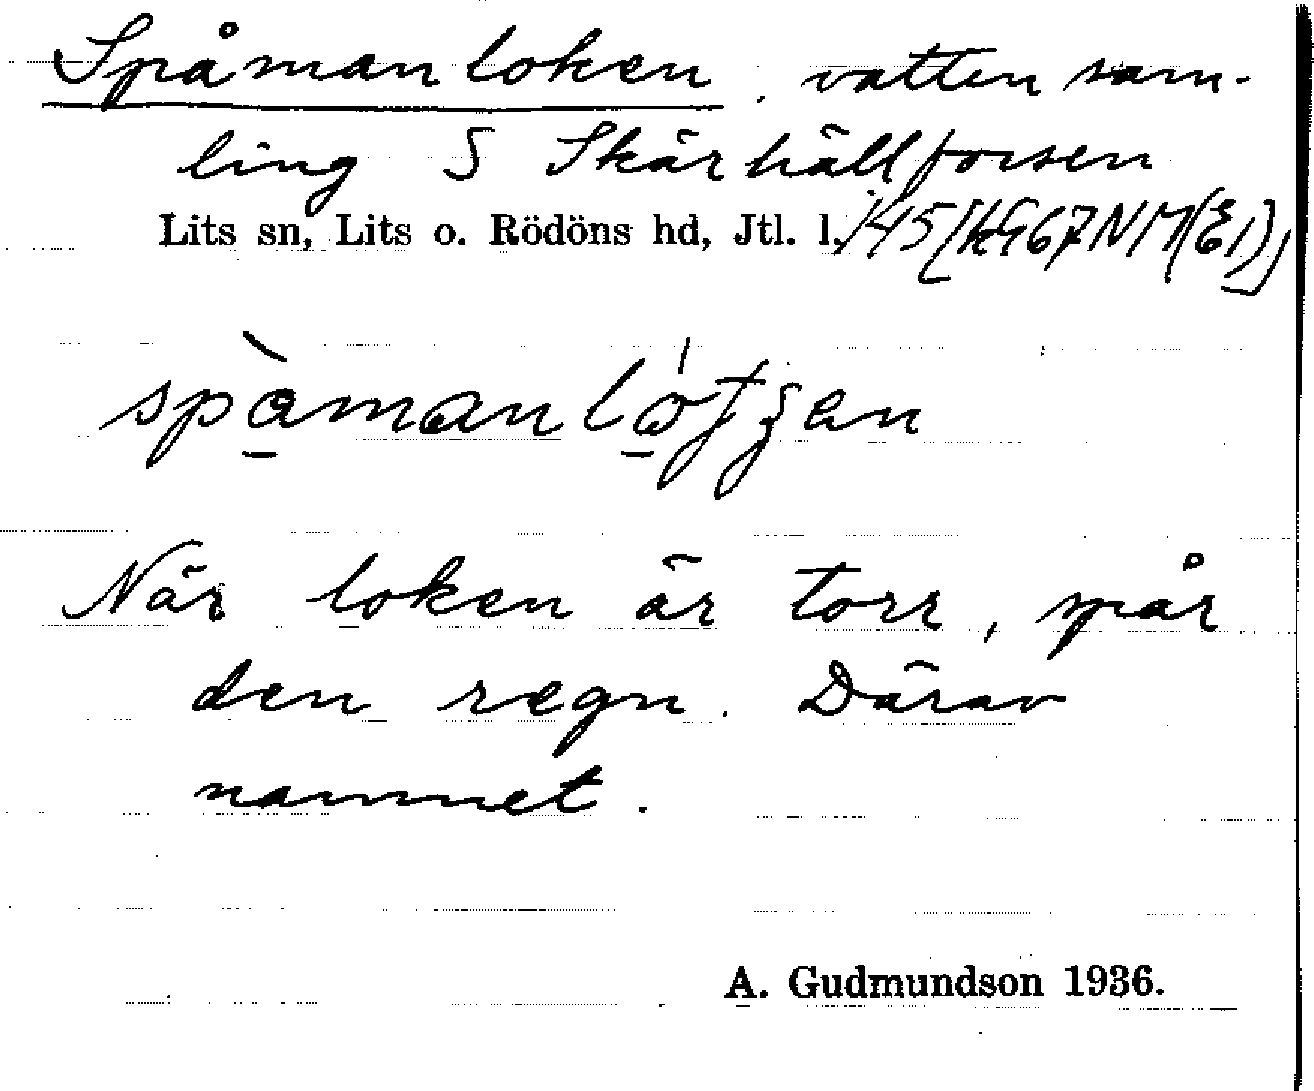 Spåmanloken. vattensam-
ling S Skärhällforsen
Lits sn, Lits o. Rödöns hd, Jtl. l.
När loken är torr, spår
den regn. Därav
namnet.
A. Gudmundson 1936.